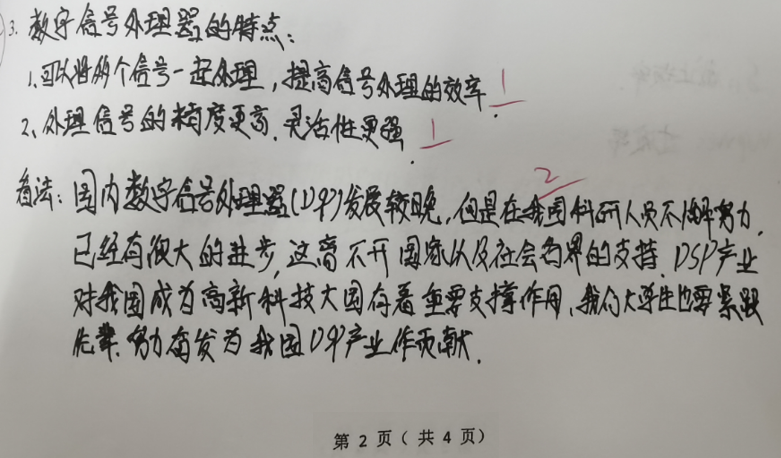 3. 数字信号处理器的特点:
1.可以将多个信号一起处理,提高信号处理的效率. 1
2、处理信号的精度更高.灵活性更强. 1
2
看法:国内数字信号处理器(DSP)发展较晚,但是在我国科研人员不懈努力,
已经有很大的进步,这离不开国家以及社会各界的支持.DSP产业
对我国成为高新科技大国有着重要支撑作用、我们大学生也要紧跟
先辈.努力奋发为我国DSP产业作贡献.
第 2 页( 共 4 页)